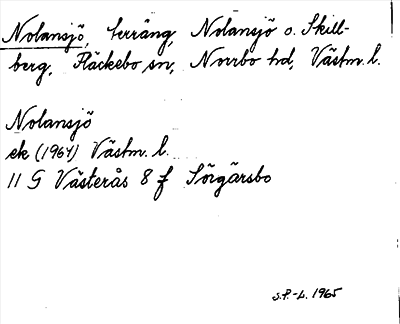 Nolansjö, terräng, Nolansjö o. Skill-
berg, Fläckebo sn, Norrbo hd, Västm. l.
Nolansjö
ek (1964) Västm. l.
11 G Västerås 8 f Sörgärsbo
S.P.-L. 1965